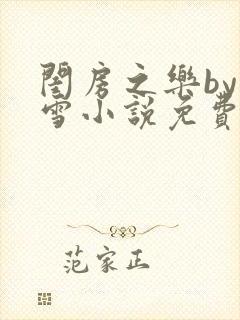 閨房之樂by
雪小說免費
范家正